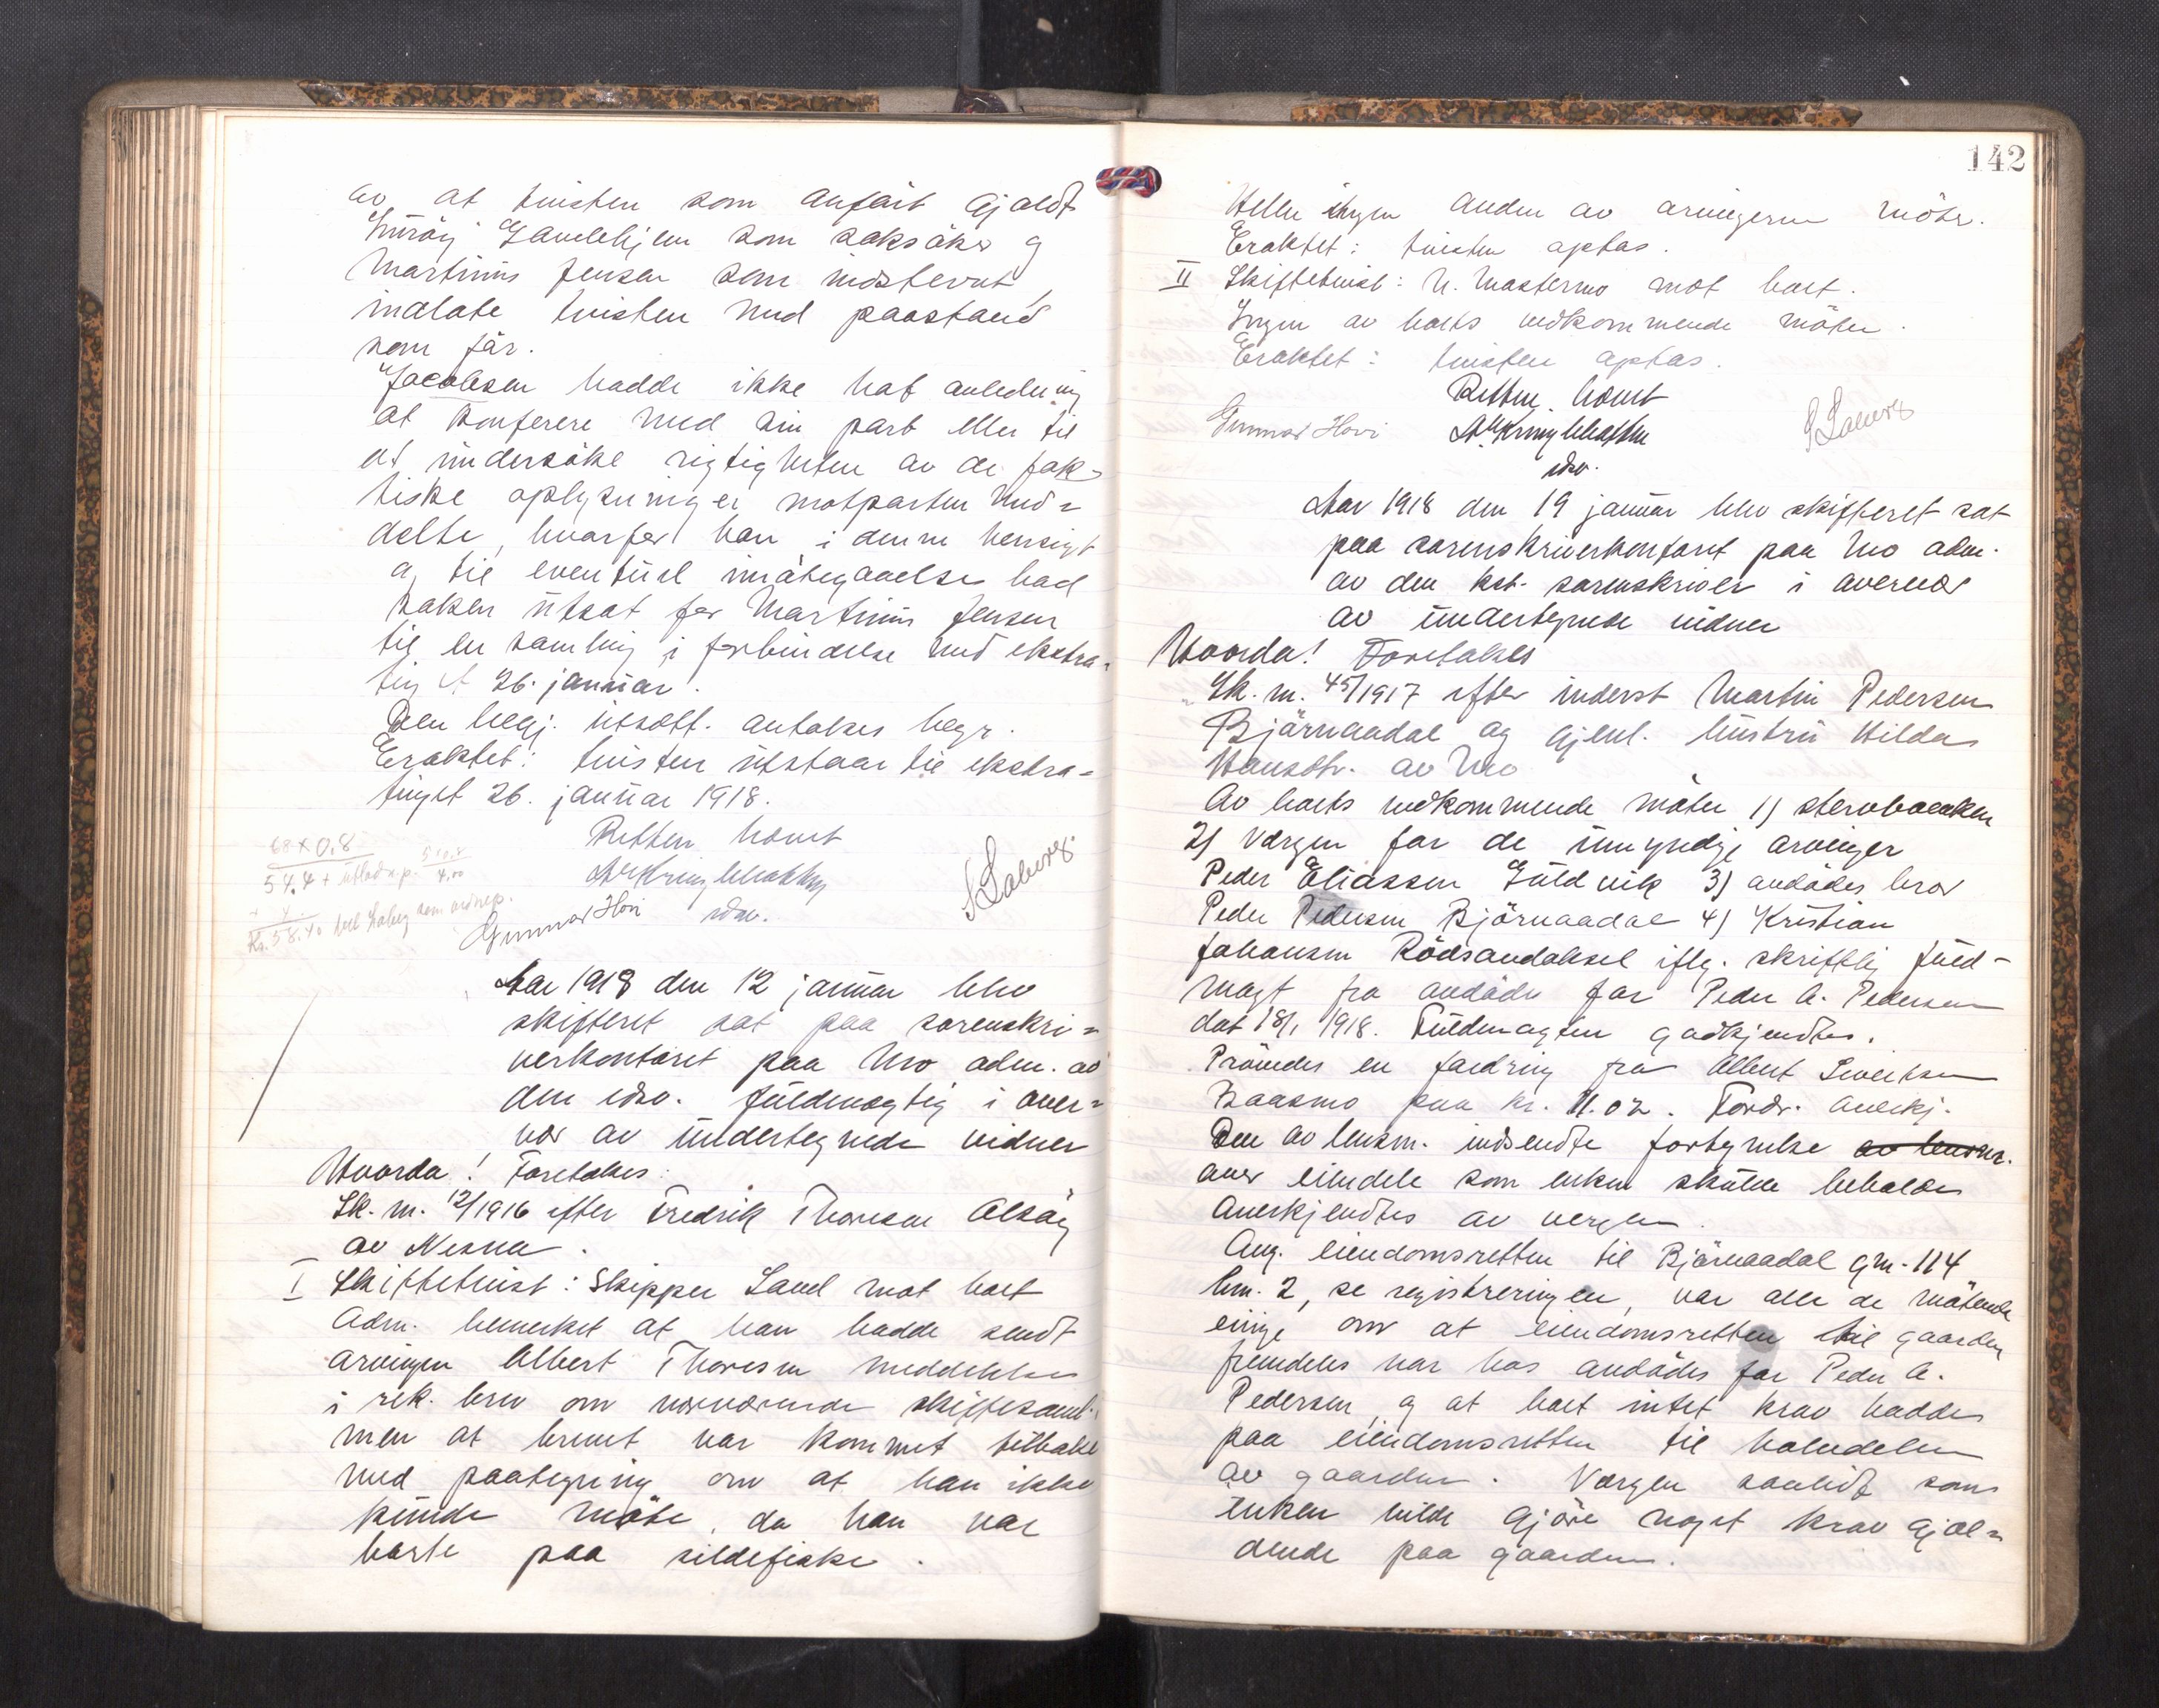 av at tvisten som anført gjaldt
som saksøker og
Martinus Jensen som indstevnt,
indlate tvisten med paastand
som før.
Jacobsen hadde ikke hat anledning
at konferere med sin part eller til
at undersøke rigtigheten av de fak-
tiske oplysninger motparten med-
delte, hvorfor han i denne hensigt
og til eventuel imøtegaaelse bad
saken utsat for Martinus Jensen
til en samling i forbindelse med ekstra-
tinget 26. januar.
Den begj. utsætt. antokes begr.
Eragtet: tvisten utstaar til ekstra-
tinget 26. januar 1918.
Retten hævet
Gunnar Hovi edsv.
S Laberg.
68 x 0.8
54.4 +
4.00
Kr. 58.40
Aar 1918 den 12 januar blev
skifteret sat paa sorenskri-
verkontoret paa Mo adm. av
den edsv. fuldmægtig i over-
vær av undertegnede vidner
Hvorda! Foretokes:
Sk. nr. 12/1916 efter Fredrik Thoresen Alsøy
av Nesna.
I Skiftetvist: Skipper Sand mot boet
Adm. bemerket at han hadde sendt
arvingen Albert Thoresen meddelelse
i rek. brev om nærværende skiftesaml.
men at brevet var kommet tilbake
med paategning om at han ikke
kunde møte, da han var
borte paa sildefiske.
142
Heller ingen anden av arvingerne møter.
Eragtet: tvisten optas.
II Skiftetvist: N. Mastermo mot boet.
Ingen av boets vedkommende møter.
Eragtet: tvisten optas.
Retten hævet
Gunnar Hovi
S Laberg
edsv.
Aar 1918 den 19 januar blev skifteret sat
paa sorenskriverkontoret paa Mo adm.
av den kst. sorenskriver i overvær
av undertegnede vidner
Hvorda! Foretokes
Sk. nr. 45/1917 efter inderst Martin Pedersen
Bjørnaadal og gjenl. hustru Hilda
Hansdtr. av Mo
Av boets vedkommende møter 1) stervboenken
2) Værgen for de umyndige arvinger
Peder Eliassen Guldvik 3) avdødes bror
Peder Pedersen Bjørnaadal 4) Kristian
Johansen Rødsandaksel iflg. skriftlig fuld-
magt fra avdødes far Peder A. Pedersen
dat 18/1 1918. Fuldmagten godkjendtes.
Prøvedes en fordring fra Albert Sivertsen
Baasmo paa kr. 11.02. Fordr. anerkj.
Den av lensm. indsendte fortegnelse av lensm.
over eiendele som enken skulde beholde
anerkjendtes av vergen.
Ang. eiendomsretten til Bjørnaadal gnr. 114
bnr. 2, se registreringen, var alle de møtende
enige om at eiendomsretten til gaarden
fremdeles var hos avdødes far Peder A.
Pedersen og at boet intet krav hadde
paa eiendomsretten til halvdelen
av gaarden. Værgen saavidt som
enken vilde gjøre noget krav gjæl-
dende paa gaarden.